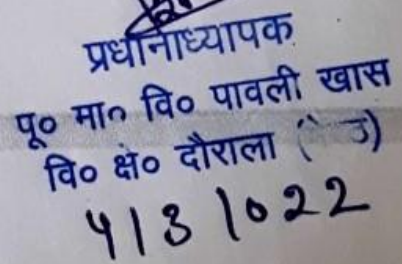 प्रधानाध्यापक
पू० मा० वि० पावली खास
वि० क्षे० दौराला
4/3/022